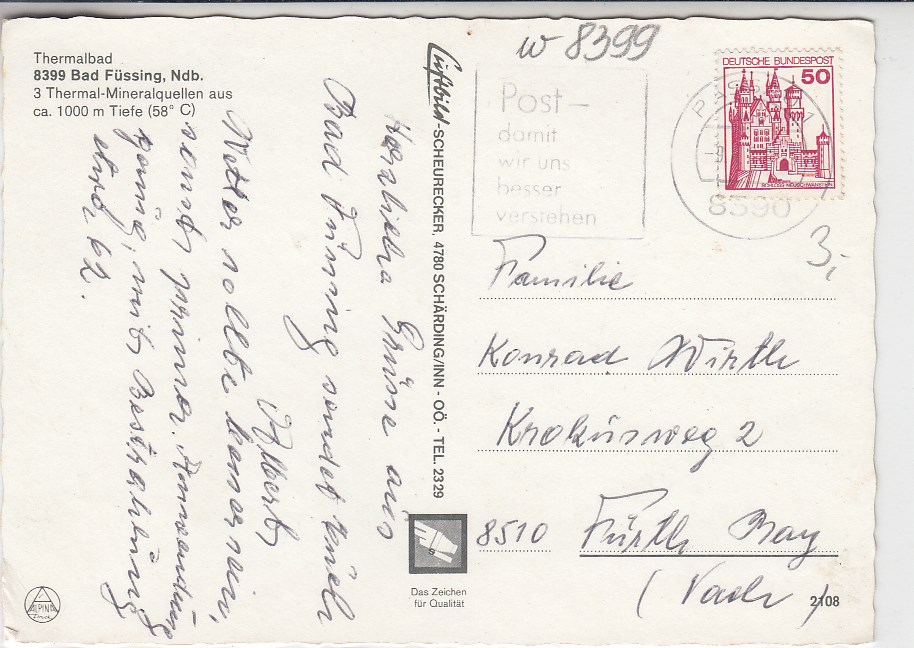 Thermalbad
8399 Bad Füssing, Ndb.
3 Thermal-Mineralquellen aus
ca. 1000 m Tiefe (58° C)
W 8399
Post-
damit
wir uns
besser
verstehen
PASSAU 1
8390
DEUTSCHE BUNDESPOST
50
SCHLOSS NEUSCHWANSTEIN
3,-
Luftbild-SCHEURECKER, 4780 SCHÄRDING/INN - OÖ. - TEL. 2329
Herzliche Grüsse aus
Bad Füssing sendet Euch
Albert
Wetter sollte besser sein,
sonst prima. Anwendung
genüg, mit Bestrahlung
sind 62.
Familie
Konrad Wirth
Krokusweg 2
8510 Fürth Bay
(Vach)
Das Zeichen
für Qualität
2108
ALPINA
Druck